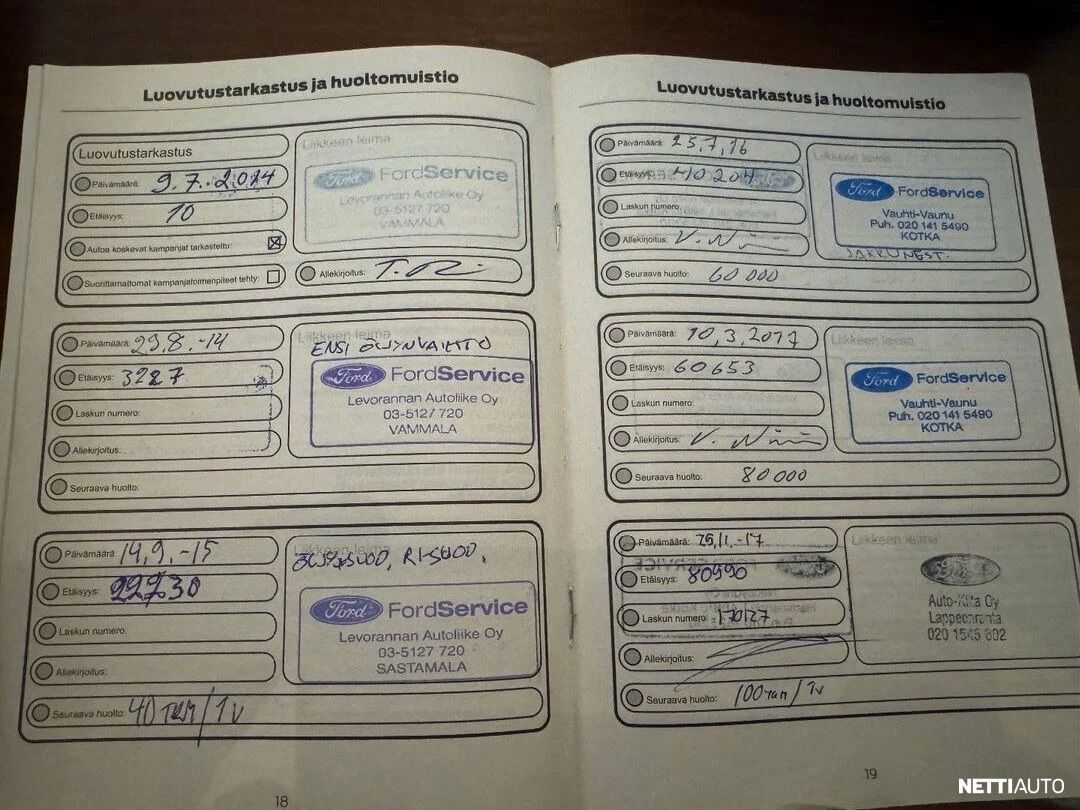 Luovutustarkastus ja huoltomuistio
Luovutustarkastus
Päivämäärä: 9.7.-2014
Etäisyys: 10
Autoa koskevat kampanjat tarkastettu:
Suorittamattomat kampanjatoimenpiteet tehty:
Liikkeen leima
Ford FordService
Levorannan Autoliike Oy
03-5127 720
VAMMALA
Allekirjoitus:
Päivämäärä: 29.8.-14
Etäisyys: 3227
Laskun numero:
Allekirjoitus:
Seuraava huolto:
Liikkeen leima
ENSI ÖLJYNVAIHTO
Ford FordService
Levorannan Autoliike Oy
03-5127 720
VAMMALA
Päivämäärä: 14.9.-15
Etäisyys: 22730
Laskun numero:
Allekirjoitus:
Seuraava huolto: 40 TKM/1v
Liikkeen leima
Ford FordService
Levorannan Autoliike Oy
03-5127 720
SASTAMALA
18
Luovutustarkastus ja huoltomuistio
Päivämäärä: 25.7.16
Etäisyys: 40204
Laskun numero:
Allekirjoitus:
Seuraava huolto: 60 000
Liikkeen leima
Ford FordService
Vauhti-Vaunu
Puh. 020 141 5490
KOTKA
JARRUNEST.
Päivämäärä: 10,3,2017
Etäisyys: 60653
Laskun numero:
Allekirjoitus:
Seuraava huolto: 80 000
Liikkeen leima
Ford FordService
Vauhti-Vaunu
Puh. 020 141 5490
KOTKA
Päivämäärä:
Etäisyys: 80990
Laskun numero:
Allekirjoitus:
Seuraava huolto: 100 tkm/1v
Liikkeen leima
Ford
Auto-Kilta Oy
Lappeenranta
020 1545 802
19
NETTIAUTO